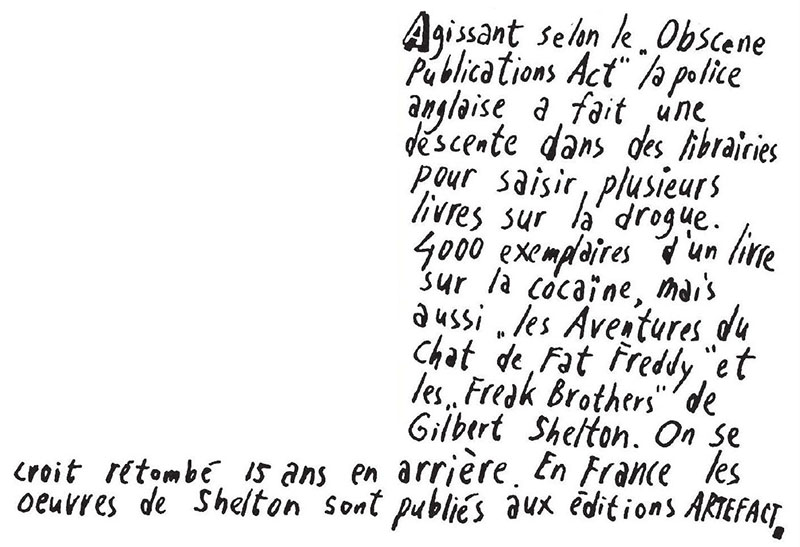 Agissant selon le „Obscene
Publications Act" la police
anglaise a fait une
descente dans des librairies
pour saisir plusieurs
livres sur la drogue.
4000 exemplaires d'un livre
sur la cocaïne, mais
aussi „les Aventures du
Chat de Fat Freddy" et
les „Freak Brothers" de
Gilbert Shelton. On se
croit rétombé 15 ans en arrière. En France les
oeuvres de Shelton sont publiés aux éditions ARTEFACT.